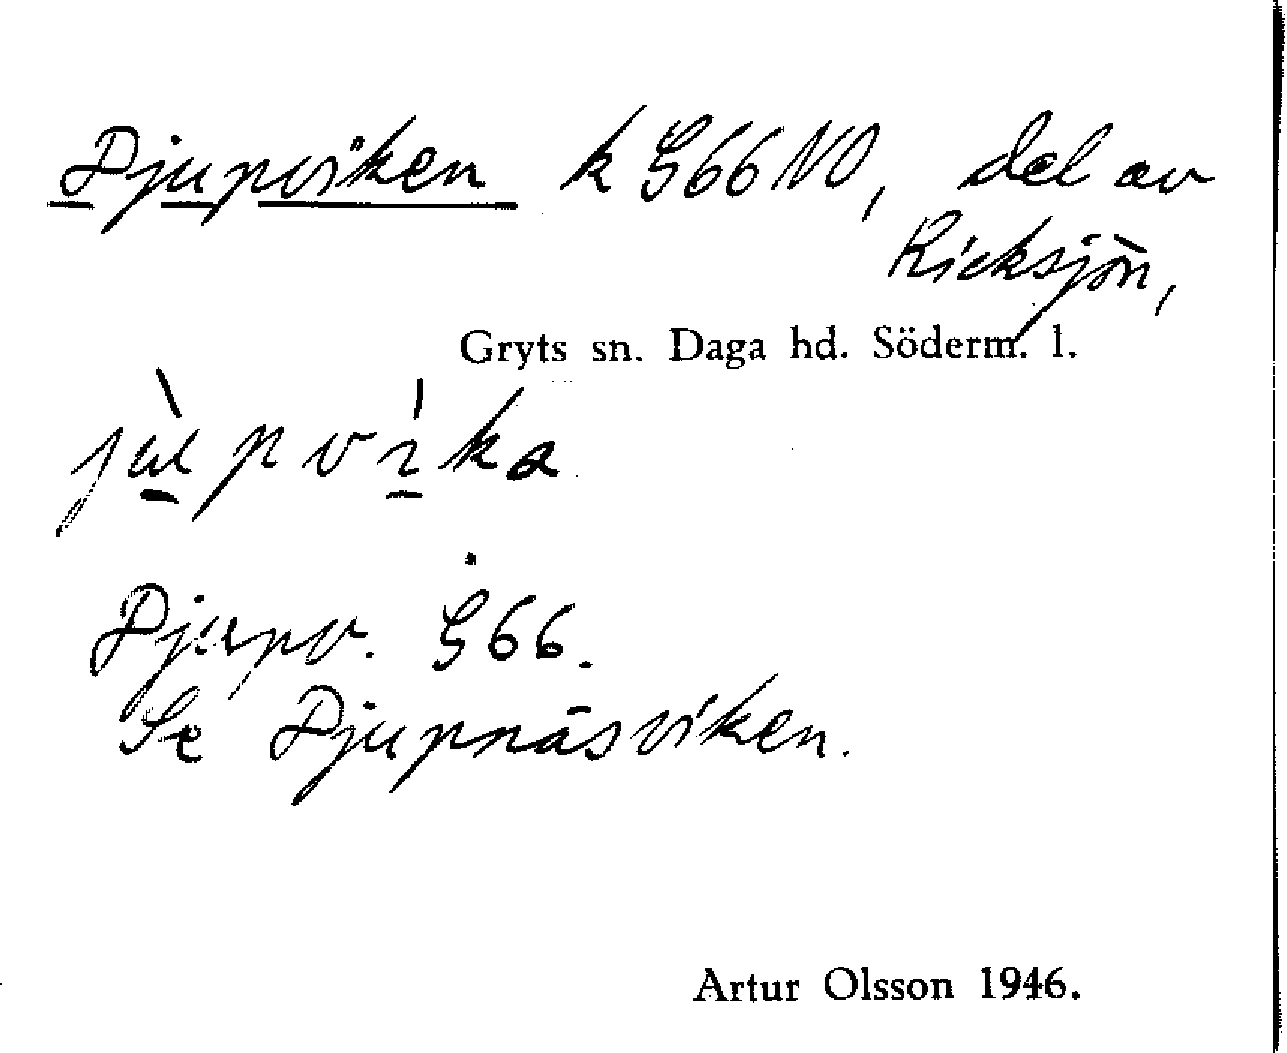 Djupviken k G66 NO, del av
Ricksjön,
Gryts sn. Daga hd. Söderm. l.
jù̱pvɩ̱́ka
Djupv. G66.
Se Djupnäsviken.
Artur Olsson 1946.